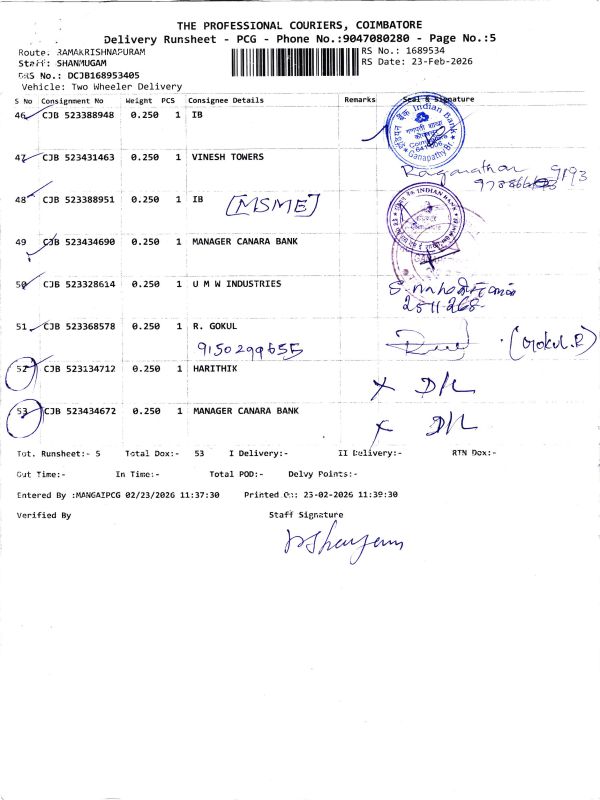 THE PROFESSIONAL COURIERS, COIMBATORE
Delivery Runsheet - PCG - Phone No.:9047080280 - Page No.:5
Route: RAMAKRISHNAPURAM
RS No.: 1689534
Staff: SHANMUGAM
RS Date: 23-Feb-2026
DRS No.: DCJB168953405
Vehicle: Two Wheeler Delivery
S No Consignment No Weight PCS Consignee Details Remarks Seal & Signature
46 CJB 523388948 0.250 1 IB
Indian Bank
Ganapathy Br.
47 CJB 523431463 0.250 1 VINESH TOWERS
9193
48 CJB 523388951 0.250 1 IB [MSME]
INDIAN BANK
49 CJB 523434690 0.250 1 MANAGER CANARA BANK
50 CJB 523328614 0.250 1 U M W INDUSTRIES
2511268
51 CJB 523368578 0.250 1 R. GOKUL
(Gokul.R)
9150299655
52 CJB 523134712 0.250 1 HARITHIK
X D/L
53 CJB 523434672 0.250 1 MANAGER CANARA BANK
X D/L
Tot. Runsheet:- 5 Total Dox:- 53 I Delivery:- II Delivery:- RTN Dox:-
Out Time:- In Time:- Total POD:- Delvy Points:-
Entered By :MANGAIPCG 02/23/2026 11:37:30 Printed On: 23-02-2026 11:39:30
Verified By Staff Signature